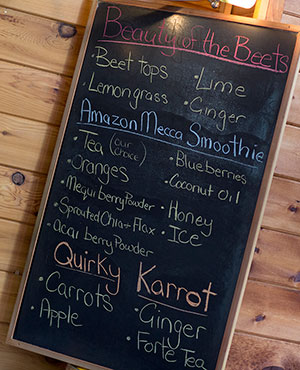 Beauty of the Beets
• Beet tops • Lime
• Lemongrass • Ginger
Amazon Mecca Smoothie
• Tea (our choice) • Blueberries
• Oranges • Coconut Oil
• Mequi berry Powder • Honey
• Sprouted Chia + Flax • Ice
• acai berry Powder
Quirky Karrot
• Carrots • Ginger
• Apple • Forte Tea